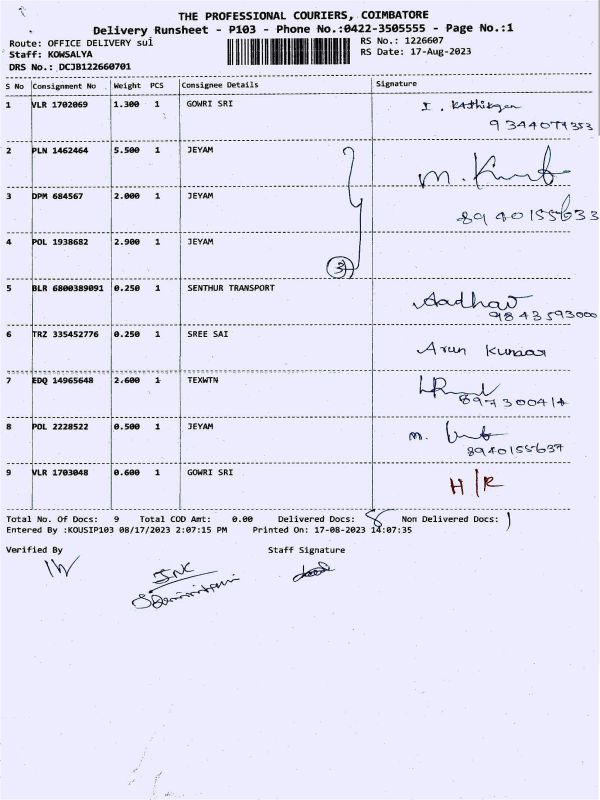 THE PROFESSIONAL COURIERS, COIMBATORE
Delivery Runsheet - P103 - Phone No.:0422-3505555 - Page No.:1
Route: OFFICE DELIVERY sul RS No.: 1226607
Staff: KOWSALYA RS Date: 17-Aug-2023
DRS No.: DCJB122660701
S No Consignment No Weight PCS Consignee Details Signature
1 VLR 1702069 1.300 1 GOWRI SRI
2 PLN 1462464 5.500 1 JEYAM
3 DPM 684567 2.000 1 JEYAM
4 POL 1938682 2.900 1 JEYAM
3
5 BLR 6800389091 0.250 1 SENTHUR TRANSPORT Aadhav
9843593000
6 TRZ 335452776 0.250 1 SREE SAI Arun Kumaar
7 EDQ 14965648 2.600 1 TEXWTN
8 POL 2228522 0.500 1 JEYAM M.
8940155637
9 VLR 1703048 0.600 1 GOWRI SRI H/R
Total No. Of Docs: 9 Total COD Amt: 0.00 Delivered Docs: 8 Non Delivered Docs: 1
Entered By :KOUSIP103 08/17/2023 2:07:15 PM Printed On: 17-08-2023 14:07:35
Verified By Staff Signature